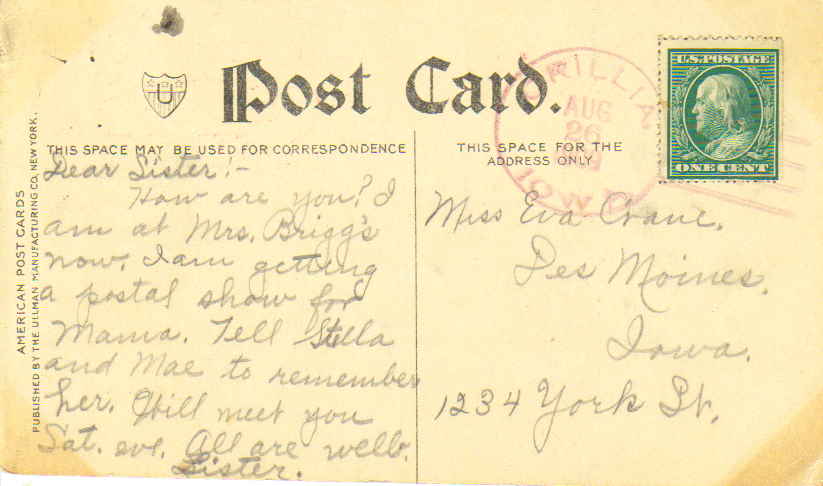 U
Post Card.
THIS SPACE MAY BE USED FOR CORRESPONDENCE
THIS SPACE FOR THE
ADDRESS ONLY
ORILLIA
AUG
26
IOWA
U.S. POSTAGE
ONE CENT
AMERICAN POST CARDS
PUBLISHED BY THE ULLMAN MANUFACTURING CO. NEW YORK.
Dear Sister!-
How are you? I
am at Mrs. Brigg's
now. I am getting
a postal show for
Mama. Tell Stella
and Mae to remember
her. Will meet you
Sat. eve. All are well.
Sister.
Miss Eva Crane.
Des Moines.
Iowa.
1234 York St.